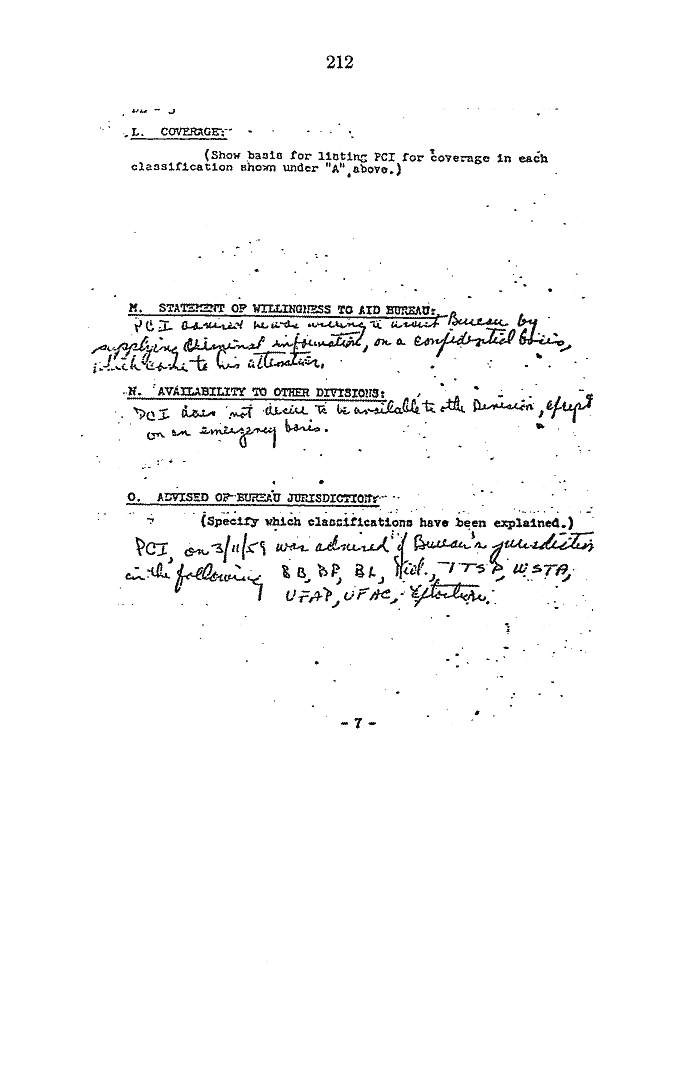 212
L. COVERAGE:
(Show basis for listing PCI for coverage in each
classification shown under "A" above.)
M. STATEMENT OF WILLINGNESS TO AID BUREAU:
PCI advised he was willing to assist Bureau by
supplying criminal information, on a confidential basis,
which came to his attention.
N. AVAILABILITY TO OTHER DIVISIONS:
PCI does not desire to be available to other Division, except
on an emergency basis.
O. ADVISED OF BUREAU JURISDICTION:
(Specify which classifications have been explained.)
PCI, on 3/11/59 was advised of Bureau's jurisdiction
in the following BB, BF, BL, TTSP, WSTA,
UFAP, UFAC, Extortion.
- 7 -